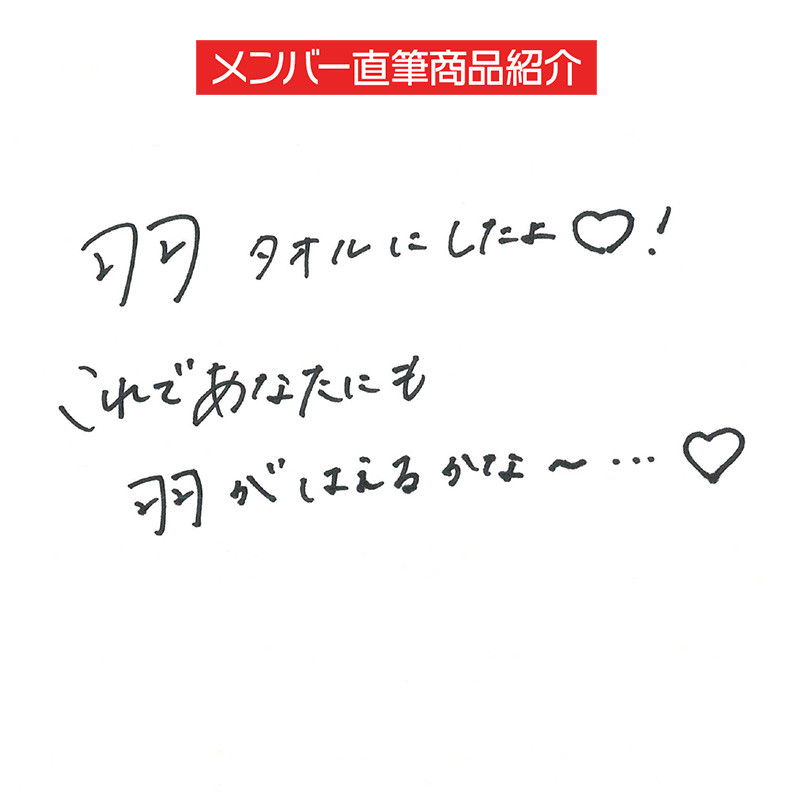 メンバー直筆商品紹介
羽タオルにしたよ♡!
これであなたにも
羽がはえるかな〜…♡